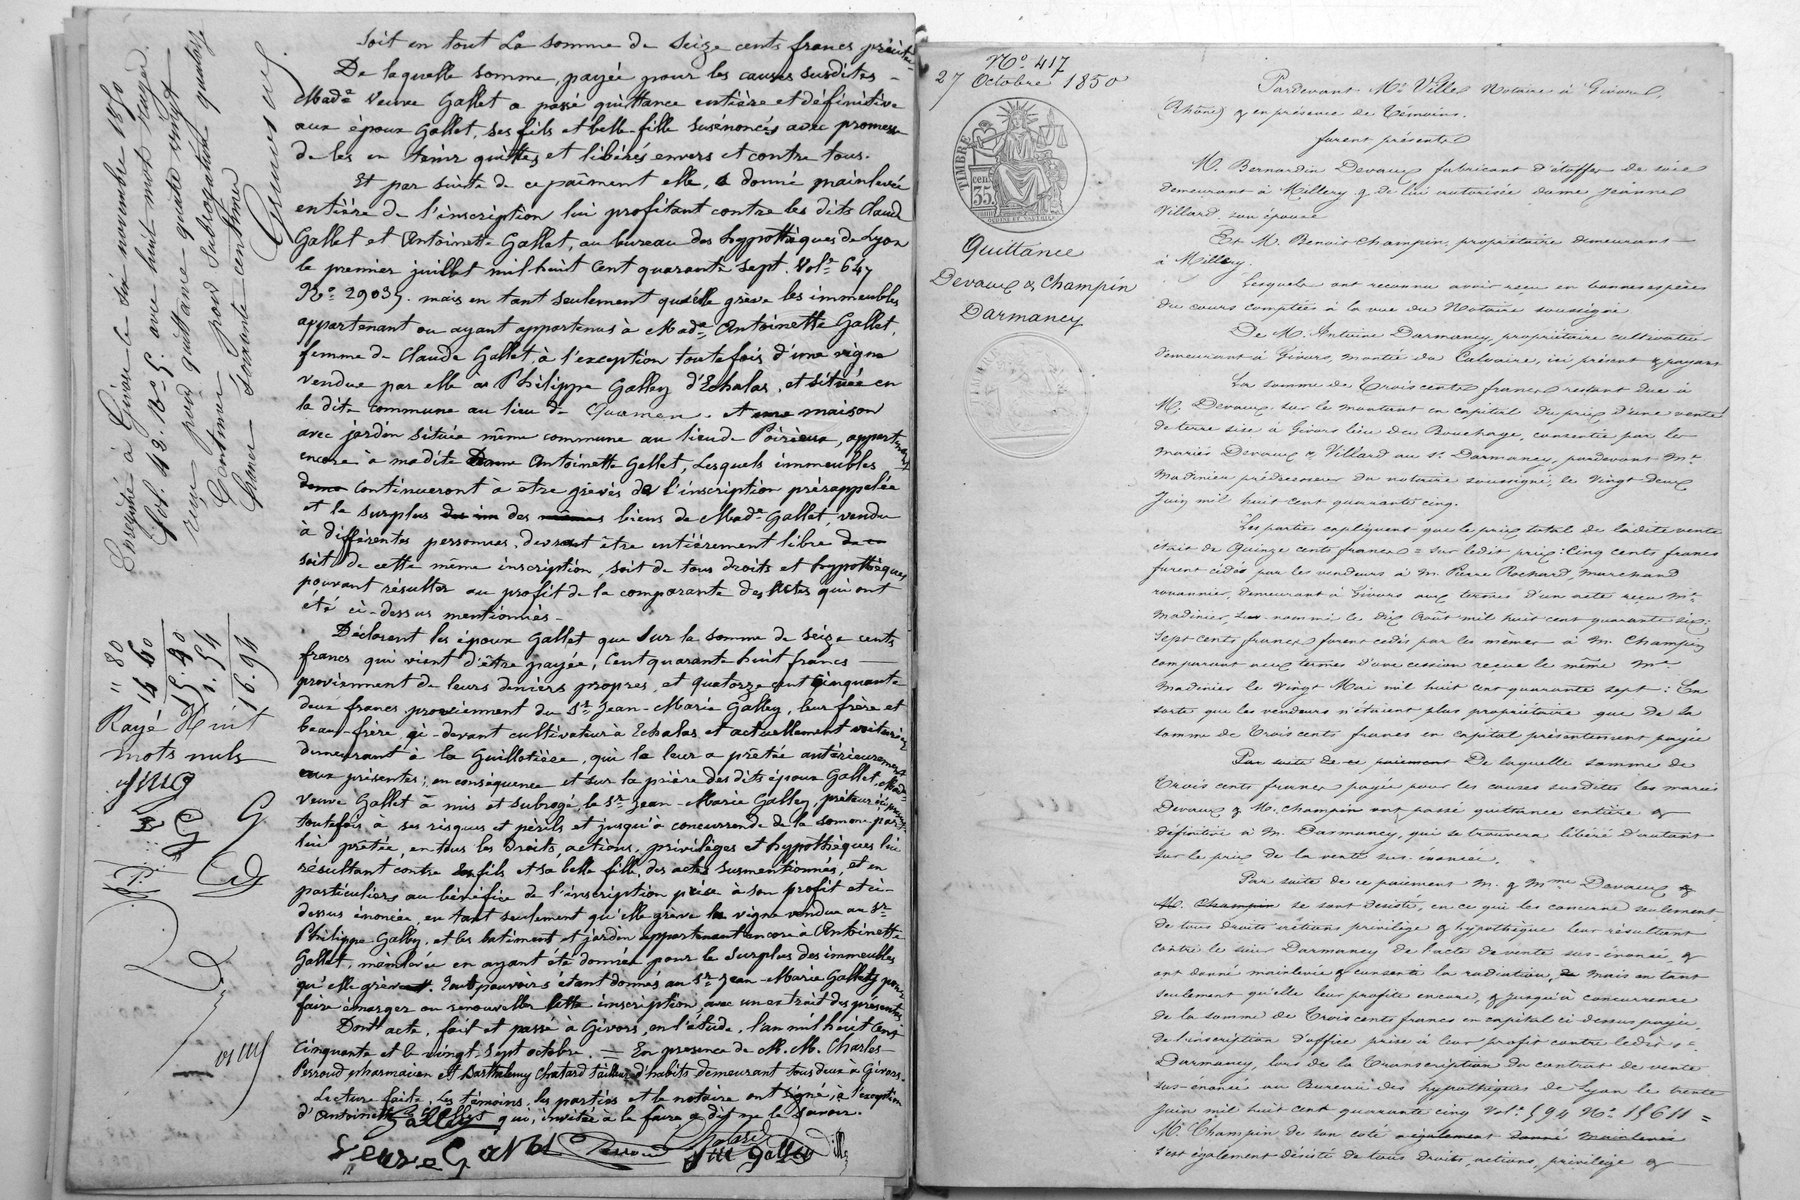 Soit en tout la somme de Seize cents francs précitée
De laquelle somme, payée pour les causes susdites
Made Veuve Gallet a passé quittance entière et définitive
aux époux Gallet, ses fils et belle-fille susénoncés avec promesse
de les en tenir quittes et libérés envers et contre tous.
Et par suite de ce paiment elle, a donné mainlevée
entière de l'inscription lui profitant contre les dits Claude
Gallet et Antoinette Gallet, au bureau des hypothèques de Lyon
le premier juillet mil huit cent quarante sept. Vol. 647
No. 29035. mais en tant seulement qu'elle grève les immeubles
appartenant ou ayant appartenus à Made Antoinette Gallet,
femme de Claude Gallet, à l'exception toutefois d'une vigne
vendue par elle à Philippe Galley d'Echalas, et située en
la dite commune au lieu de et maison
avec jardin située même commune au lieu de Poirieux, appartenant
encore à madite Antoinette Gallet, Lesquels immeubles
continueront à être grévés de l'inscription prérappelée
et le surplus des biens de Made Gallet, vendu
à différentes personnes, devront être entièrement libre
soit de cette même inscription, soit de tous droits et hypothèques
pouvant résulter au profit de la comparante des actes qui ont
été ci-dessus mentionnés.
Déclarent les époux Gallet que sur la somme de seize cents
francs qui vient d'être payée, Cent quarante huit francs
proviennent de leurs deniers propres, et quatorze cent cinquante
deux francs proviennent du Sr. Jean-Marie Galley, leur frère et
beau-frère, ci-devant cultivateur à Echalas et actuellement voiturier
demeurant à la Guillotière, qui le leur a prêtée antérieurement
aux présentes; en conséquence et sur la prière des dits époux Gallet, Made
veuve Gallet a mis et subrogé le Sr. Jean-Marie Galley, prêteur
toutefois à ses risques et périls et jusqu'à concurrence de la somme par
lui prêtée, en tous les droits, actions, privilèges et hypothèques lui
résultant contre ses fils et sa belle fille, des actes susmentionnés, et en
particuliers au bénéfice de l'inscription prise à son profit et ci-
dessus énoncée, en tant seulement qu'elle grève la vigne vendue au Sr.
Philippe Galley, et les batiments et jardin appartenant encore à Antoinette
Gallet, mainlevée en ayant été donnée pour le surplus des immeubles
qu'elle grèvent. Tout pouvoirs étant donnés au Sr. Jean-Marie Galley pour
faire émarger ou renouveller cette inscription avec un extrait des présentes.
Dont acte, fait et passé à Givors, en l'étude, l'an mil huit cent
cinquante et le vingt-sept octobre. En presence de M.M. Charles
Perroud, pharmacien et Barthélemy Chatard tailleur d'habits demeurant tous deux à Givors.
Lecture faite, les témoins, les parties et le notaire ont signé, à l'exception
d'Antoinette Gallet qui, invitée à le faire a dit ne le savoir.
Enregistré à Givors le six novembre 1850
Fol. 43. Ro. 5. avec huit mots rayés.
reçu pour quittance quatre vingt
Centimes, pour Subrogation quatorze
francs soixante centimes
" 80
14 60
15.40
1.54
16.94
Rayé Huit
mots nuls
No. 417
27 Octobre 1850
TIMBRE
35
cen
Quittance
Devaux & Champin
Darmancy
Pardevant Me Ville Notaire à Givors,
(Rhône) & en présence de témoins.
furent présents
M. Bernardin Devaux fabricant d'étoffes de soie
demeurant à Millery, & de lui autorisée dame Jeanne
Villard, son épouse
Et M. Benoit Champin, propriétaire demeurant
à Millery.
Lesquels ont reconnu avoir reçu en bonnes espèces
du cours comptées à la vue du Notaire soussigné
De M. Antoine Darmancy, propriétaire cultivateur
demeurant à Givors, montée du Calvaire, ici présent & payant
La somme de Trois cents francs restant due à
M. Devaux, sur le montant en capital du prix d'une vente
de terre sise à Givors lieu du Bouchage, consentie par les
mariés Devaux & Villard au Sr. Darmancy, pardevant Me
Madinier prédécesseur du notaire soussigné, le vingt deux
Juin mil huit cent quarante cinq.
Les parties expliquent que le prix total de ladite vente
était de Quinze cents francs = sur ledit prix: Cinq cents francs
furent cédés par les vendeurs à M. Pierre Rochard, marchand
rouannier, demeurant à Givors aux termes d'un acte reçu Me
Madinier, sus-nommé le dix Août mil huit cent quarante six;
Sept cents francs furent cédés par les mêmes à M. Champin
comparant aux termes d'une cession reçue le même Me
Madinier le vingt Mai mil huit cent quarante sept: En
sorte que les vendeurs n'étaient plus propriétaire que de la
somme de Trois cents francs en capital présentement payée
Par suite de ce paiement De laquelle somme de
Trois cents francs payée pour les causes susdites les mariés
Devaux & M. Champin ont passé quittance entière &
définitive à M. Darmancy, qui se trouvera libéré d'autant
sur le prix de la vente sus-énoncée.
Par suite de ce paiement M. & Mme Devaux &
M. Champin se sont désisté, en ce qui les concerne seulement,
de tous droits actions privilège & hypothèque leur résultant
contre le sieur Darmancy de l'acte de vente sus-énoncé, &
ont donné mainlevée & consenti la radiation, mais en tant
seulement qu'elle leur profite encore, & jusqu'à concurrence
de la somme de Trois cents francs en capital ci dessus payée,
de l'inscription d'office prise à leur profit contre ledit Sr
Darmancy, lors de la Transcription du contrat de vente
sus-énoncé au Bureau des hypothèques de Lyon le trente
Juin mil huit cent quarante cinq Vol. 594 No. 15611 =
Mr Champin de son coté également donné mainlevée
s'est également désisté de tous droits, actions, privilège &